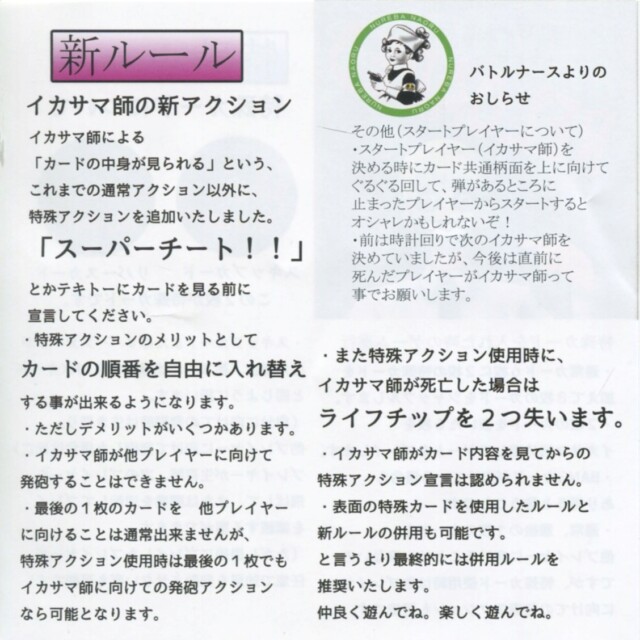 新ルール
イカサマ師の新アクション
イカサマ師による
「カードの中身が見られる」という、
これまでの通常アクション以外に、
特殊アクションを追加いたしました。
「スーパーチート！！」
とかテキトーにカードを見る前に
宣言してください。
・特殊アクションのメリットとして
カードの順番を自由に入れ替え
する事が出来るようになります。
・ただしデメリットがいくつかあります。
・イカサマ師が他プレイヤーに向けて
発砲することはできません。
・最後の１枚のカードを　他プレイヤー
に向けることは通常出来ませんが、
特殊アクション使用時は最後の１枚でも
イカサマ師に向けての発砲アクション
なら可能となります。
NUREBA NAOKU
バトルナースよりの
おしらせ
その他（スタートプレイヤーについて）
・スタートプレイヤー（イカサマ師）を
決める時にカード共通柄面を上に向けて
ぐるぐる回して、弾があるところに
止まったプレイヤーからスタートすると
オシャレかもしれないぞ！
・前は時計回りで次のイカサマ師を
決めていましたが、今後は直前に
死んだプレイヤーがイカサマ師って
事でお願いします。
・また特殊アクション使用時に、
イカサマ師が死亡した場合は
ライフチップを２つ失います。
・イカサマ師がカード内容を見てからの
特殊アクション宣言は認められません。
・表面の特殊カードを使用したルールと
新ルールの併用も可能です。
と言うより最終的には併用ルールを
推奨いたします。
仲良く遊んでね。楽しく遊んでね。